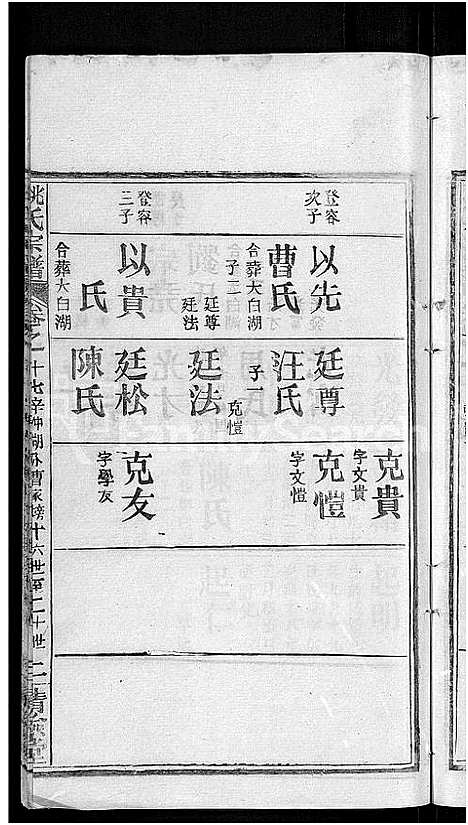 登容
次子
以先
曹氏
合葬大白湖
子二
廷尊
廷法
登容
三子
以貴
氏
合葬大白湖
廷尊
汪氏
子一
克愷
廷法
廷松
陳氏
克貴
字文貴
克愷
字文愷
克友
字學友
姚氏宗譜
卷之
十六世至二十世